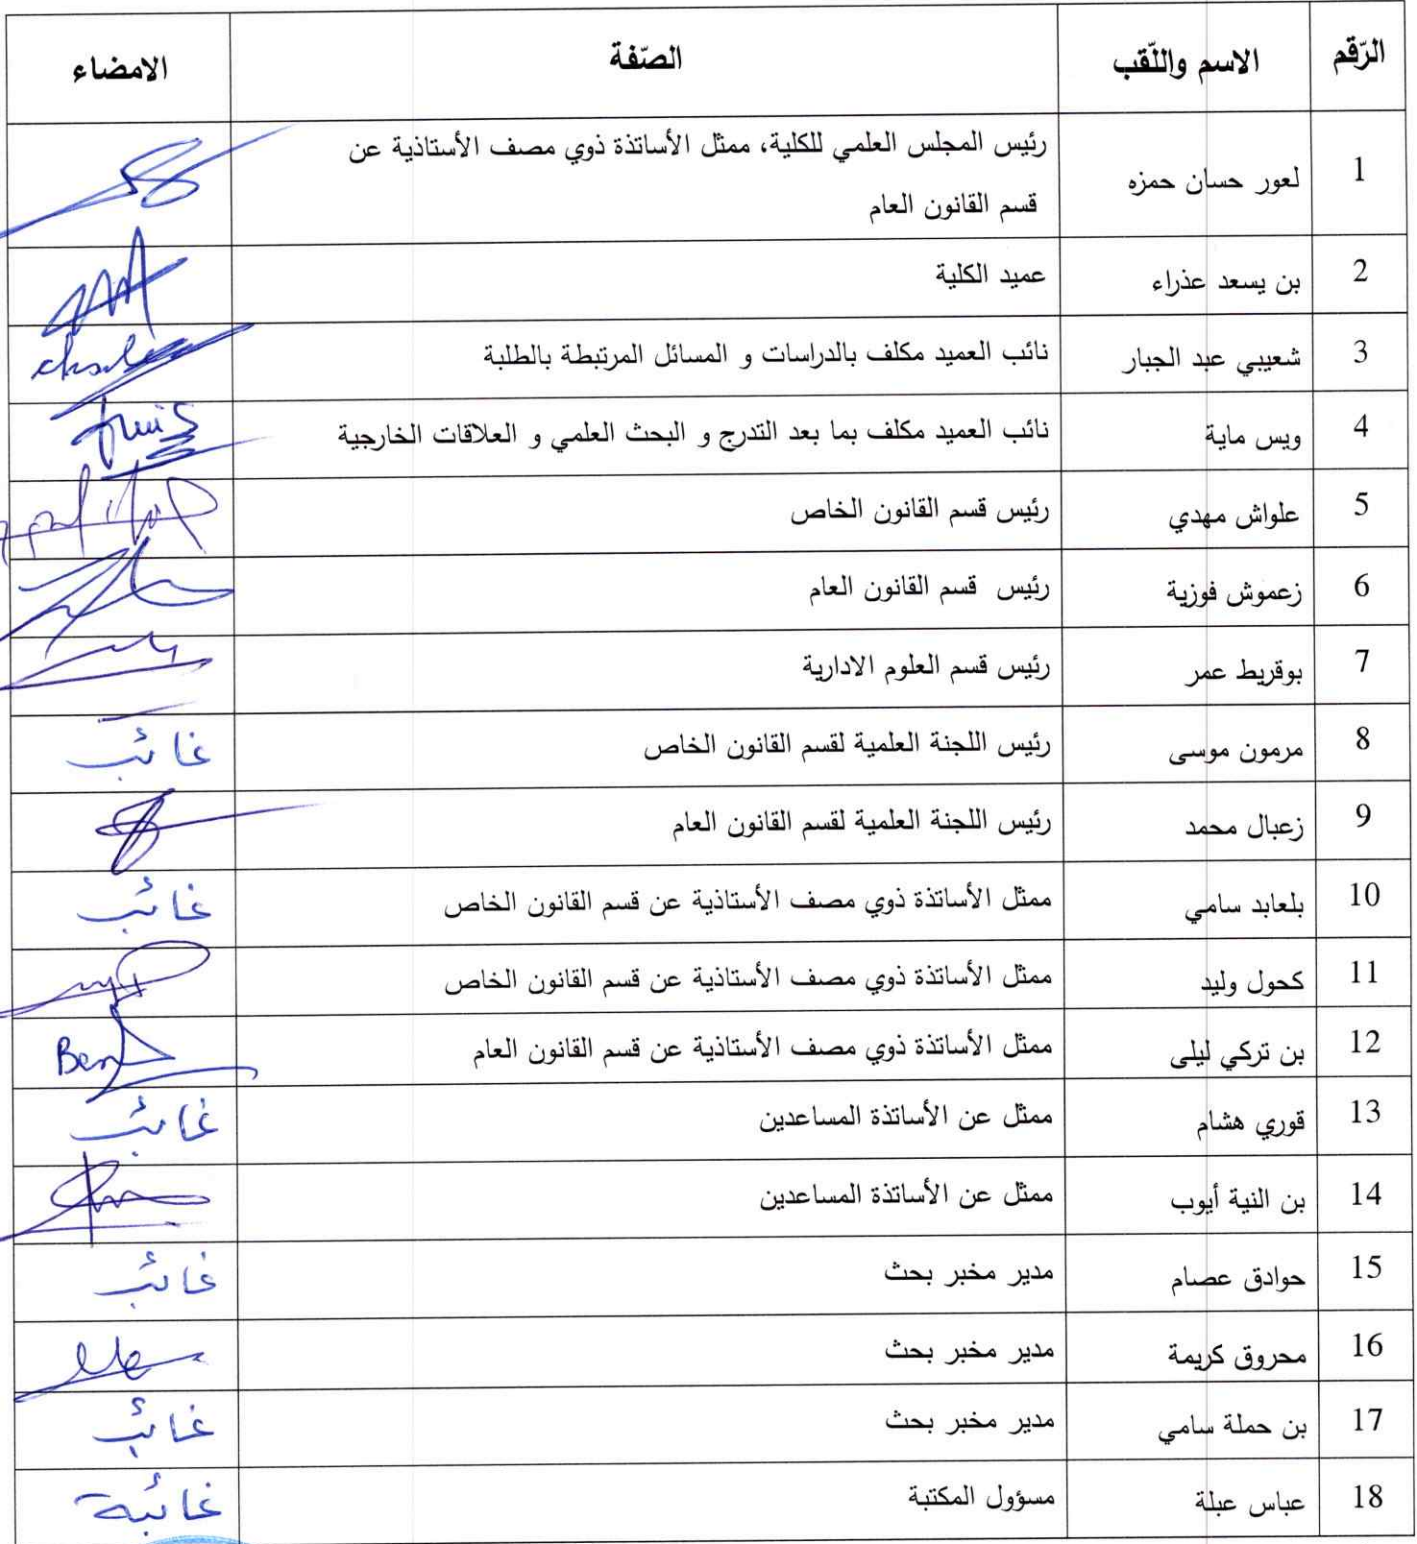 الرّقم الاسم واللّقب الصّفة الامضاء
1 لعور حسان حمزه رئيس المجلس العلمي للكلية، ممثل الأساتذة ذوي مصف الأستاذية عن
قسم القانون العام
2 بن يسعد عذراء عميد الكلية
3 شعيبي عبد الجبار نائب العميد مكلف بالدراسات و المسائل المرتبطة بالطلبة
4 ويس ماية نائب العميد مكلف بما بعد التدرج و البحث العلمي و العلاقات الخارجية
5 علواش مهدي رئيس قسم القانون الخاص
6 زعموش فوزية رئيس قسم القانون العام
7 بوقريط عمر رئيس قسم العلوم الادارية
8 مرمون موسى رئيس اللجنة العلمية لقسم القانون الخاص غائب
9 زعبال محمد رئيس اللجنة العلمية لقسم القانون العام
10 بلعابد سامي ممثل الأساتذة ذوي مصف الأستاذية عن قسم القانون الخاص غائب
11 كحول وليد ممثل الأساتذة ذوي مصف الأستاذية عن قسم القانون الخاص
12 بن تركي ليلى ممثل الأساتذة ذوي مصف الأستاذية عن قسم القانون العام
13 قوري هشام ممثل عن الأساتذة المساعدين غائب
14 بن النية أيوب ممثل عن الأساتذة المساعدين
15 حوادق عصام مدير مخبر بحث غائب
16 محروق كريمة مدير مخبر بحث
17 بن حملة سامي مدير مخبر بحث غائب
18 عباس عبلة مسؤول المكتبة غائبة